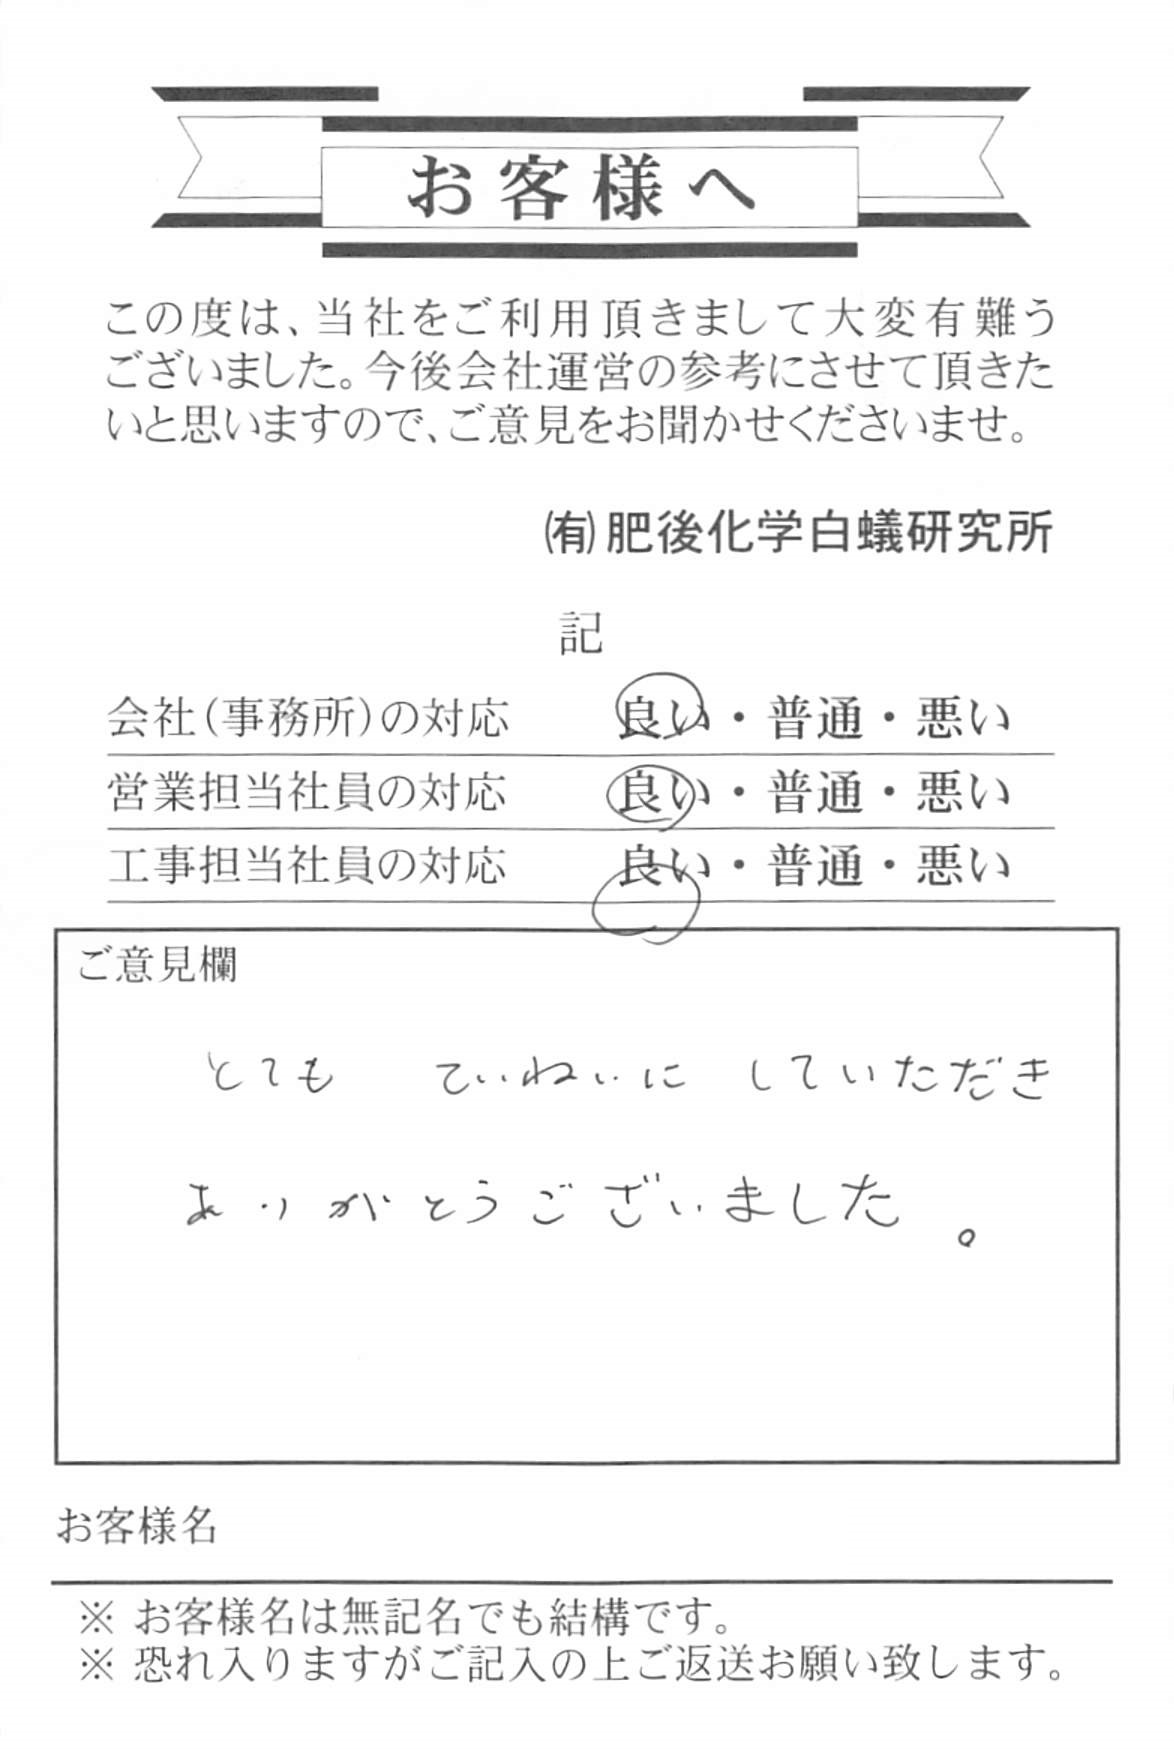 お客様へ
この度は、当社をご利用頂きまして大変有難う
ございました。今後会社運営の参考にさせて頂きた
いと思いますので、ご意見をお聞かせくださいませ。
㈲肥後化学白蟻研究所
記
会社(事務所)の対応 良い・普通・悪い
営業担当社員の対応 良い・普通・悪い
工事担当社員の対応 良い・普通・悪い
ご意見欄
とても ていねいに していただき
ありがとうございました。
お客様名
※ お客様名は無記名でも結構です。
※ 恐れ入りますがご記入の上ご返送お願い致します。